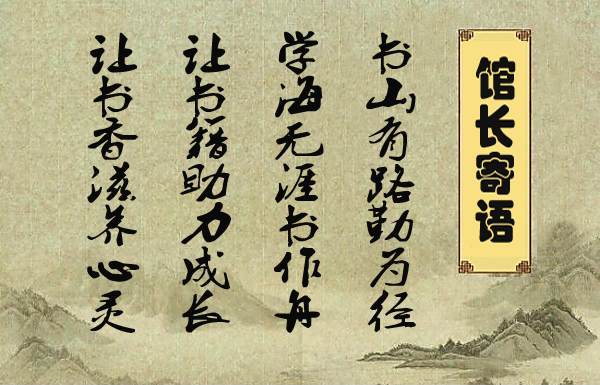 馆长寄语
书山有路勤为径
学海无涯书作舟
让书籍助力成长
让书香滋养心灵